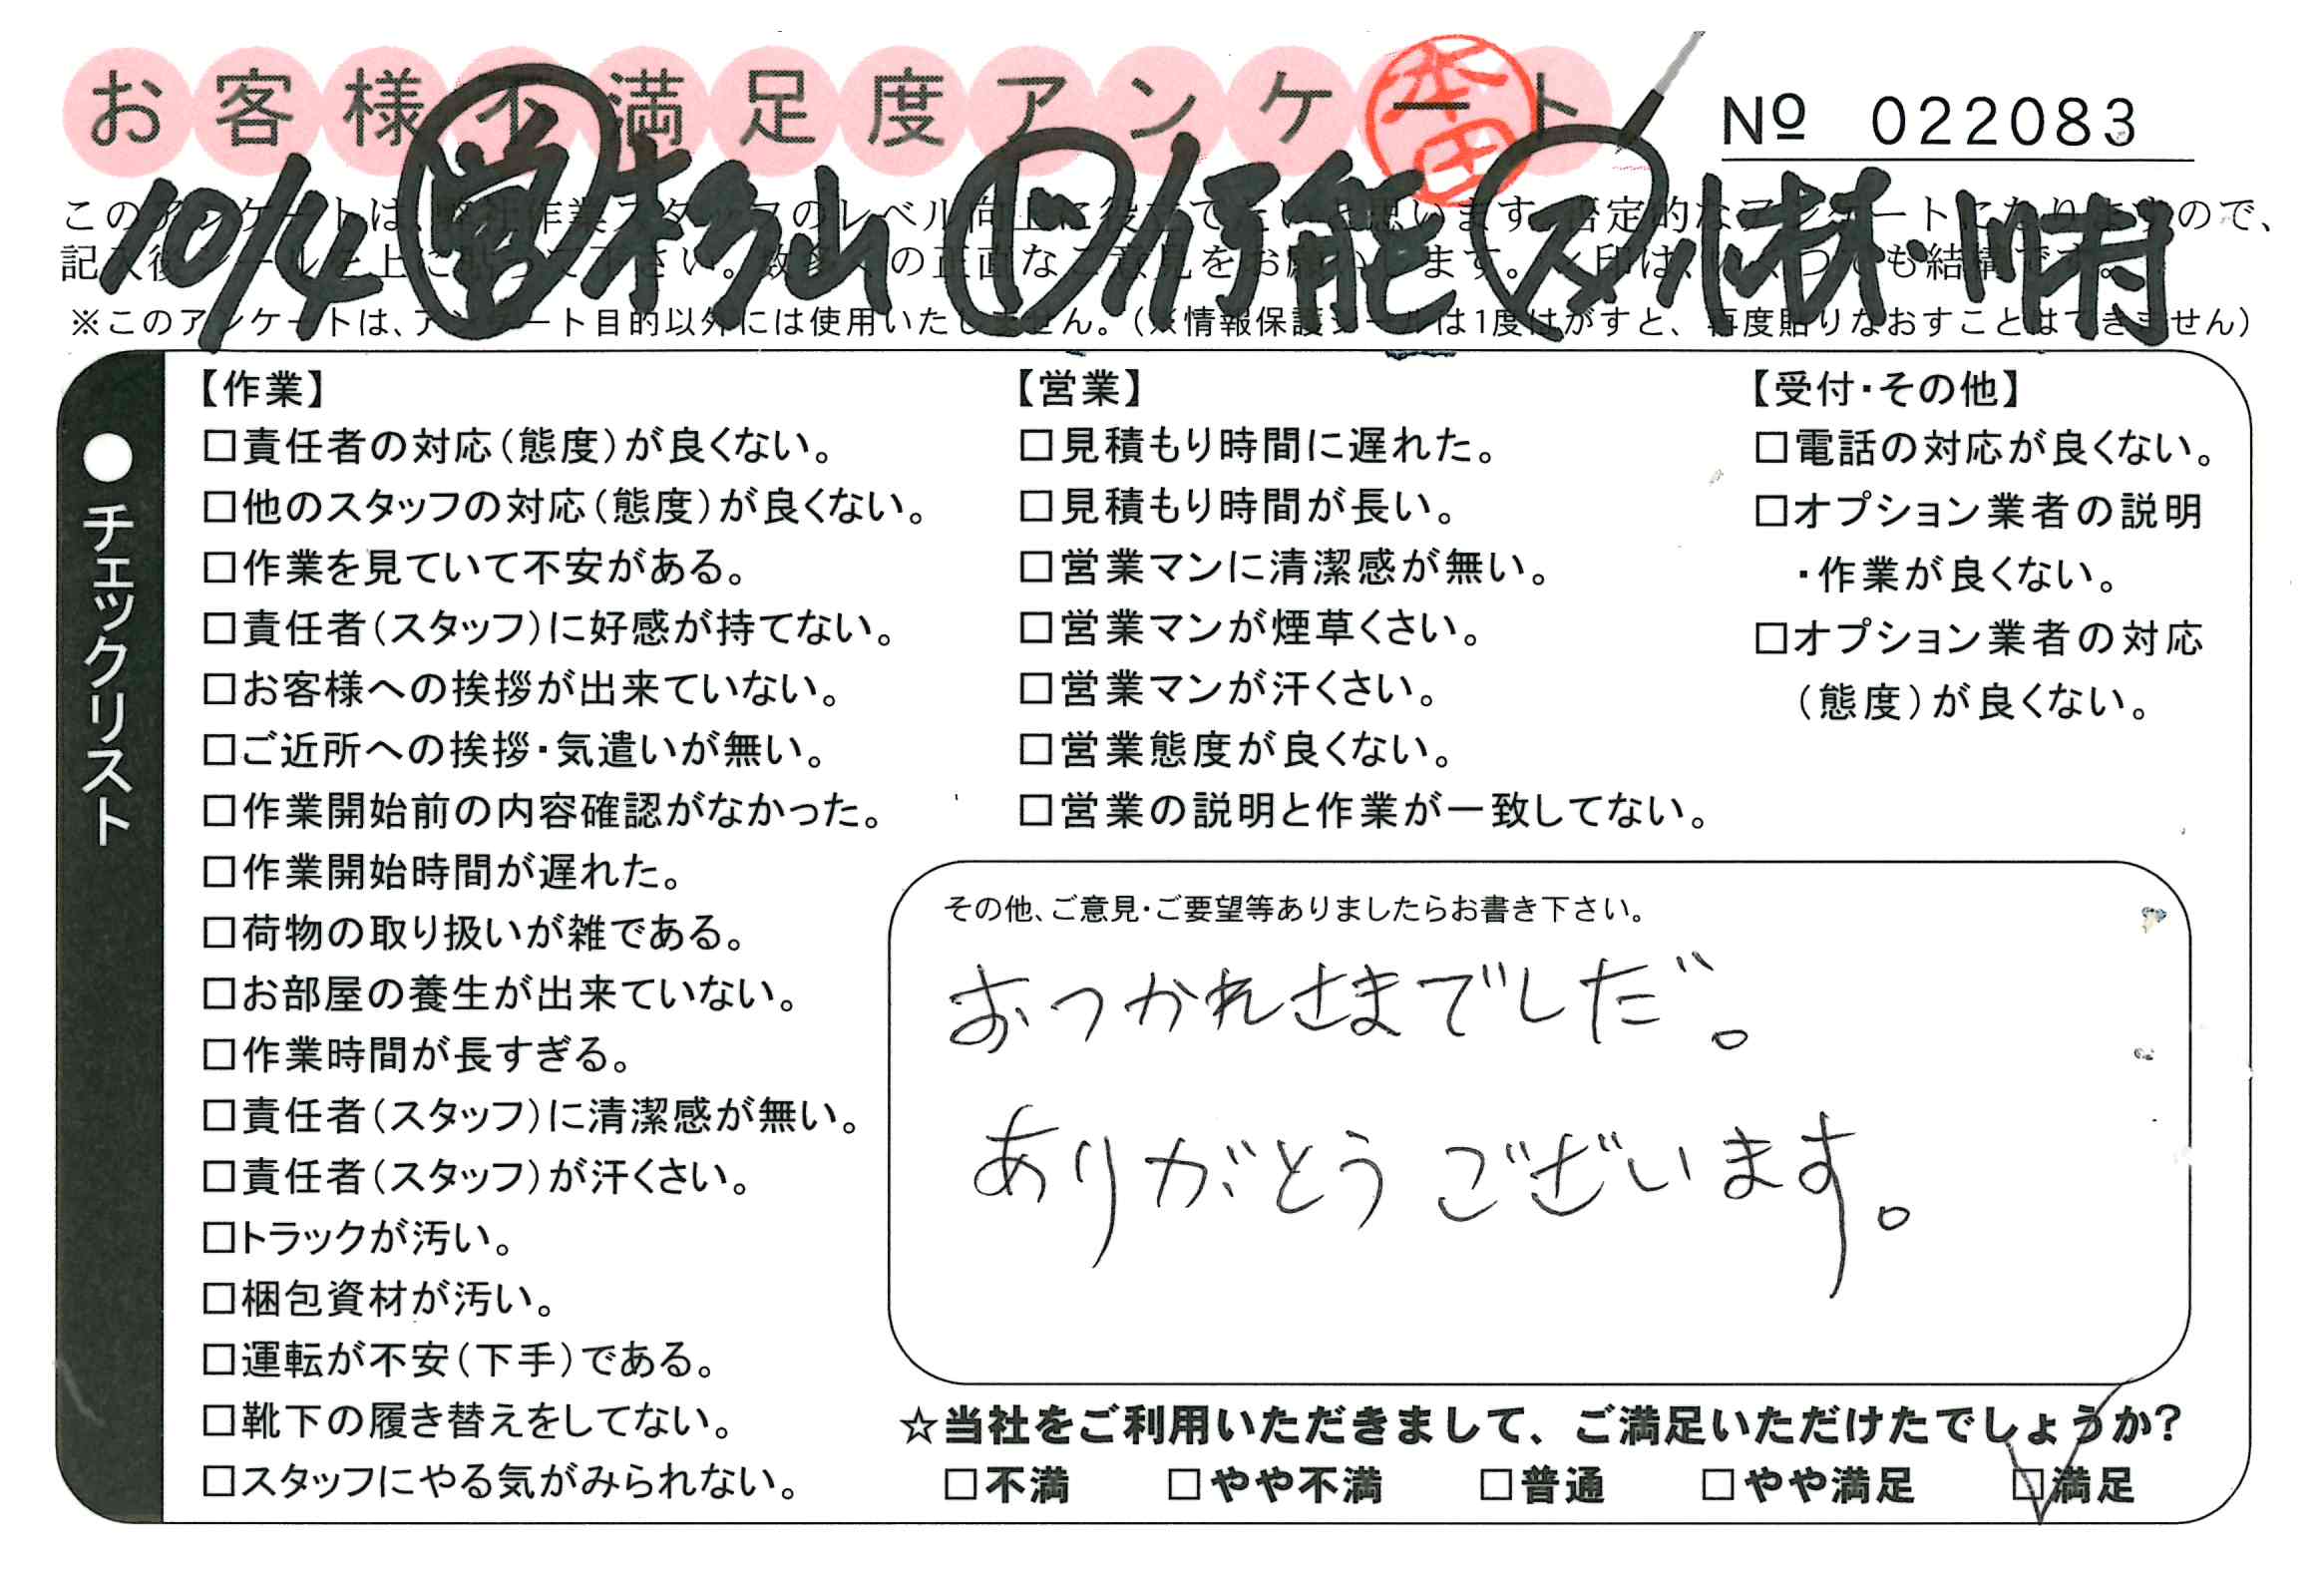 お客様不満足度アンケート
本田
№ 022083
10/4 営 杉山 ド 行能 ス 小林・川村
※このアンケートは、アンケート目的以外には使用いたしません。(※情報保護シールは1度はがすと、再度貼りなおすことはできません)
●チェックリスト
【作業】
□責任者の対応(態度)が良くない。
□他のスタッフの対応(態度)が良くない。
□作業を見ていて不安がある。
□責任者(スタッフ)に好感が持てない。
□お客様への挨拶が出来ていない。
□ご近所への挨拶・気遣いが無い。
□作業開始前の内容確認がなかった。
□作業開始時間が遅れた。
□荷物の取り扱いが雑である。
□お部屋の養生が出来ていない。
□作業時間が長すぎる。
□責任者(スタッフ)に清潔感が無い。
□責任者(スタッフ)が汗くさい。
□トラックが汚い。
□梱包資材が汚い。
□運転が不安(下手)である。
□靴下の履き替えをしてない。
□スタッフにやる気がみられない。
【営業】
□見積もり時間に遅れた。
□見積もり時間が長い。
□営業マンに清潔感が無い。
□営業マンが煙草くさい。
□営業マンが汗くさい。
□営業態度が良くない。
□営業の説明と作業が一致してない。
【受付・その他】
□電話の対応が良くない。
□オプション業者の説明
・作業が良くない。
□オプション業者の対応
(態度)が良くない。
その他、ご意見・ご要望等ありましたらお書き下さい。
おつかれさまでしだ。
ありがとうございます。
☆当社をご利用いただきまして、ご満足いただけたでしょうか?
□不満 □やや不満 □普通 □やや満足 ☑満足